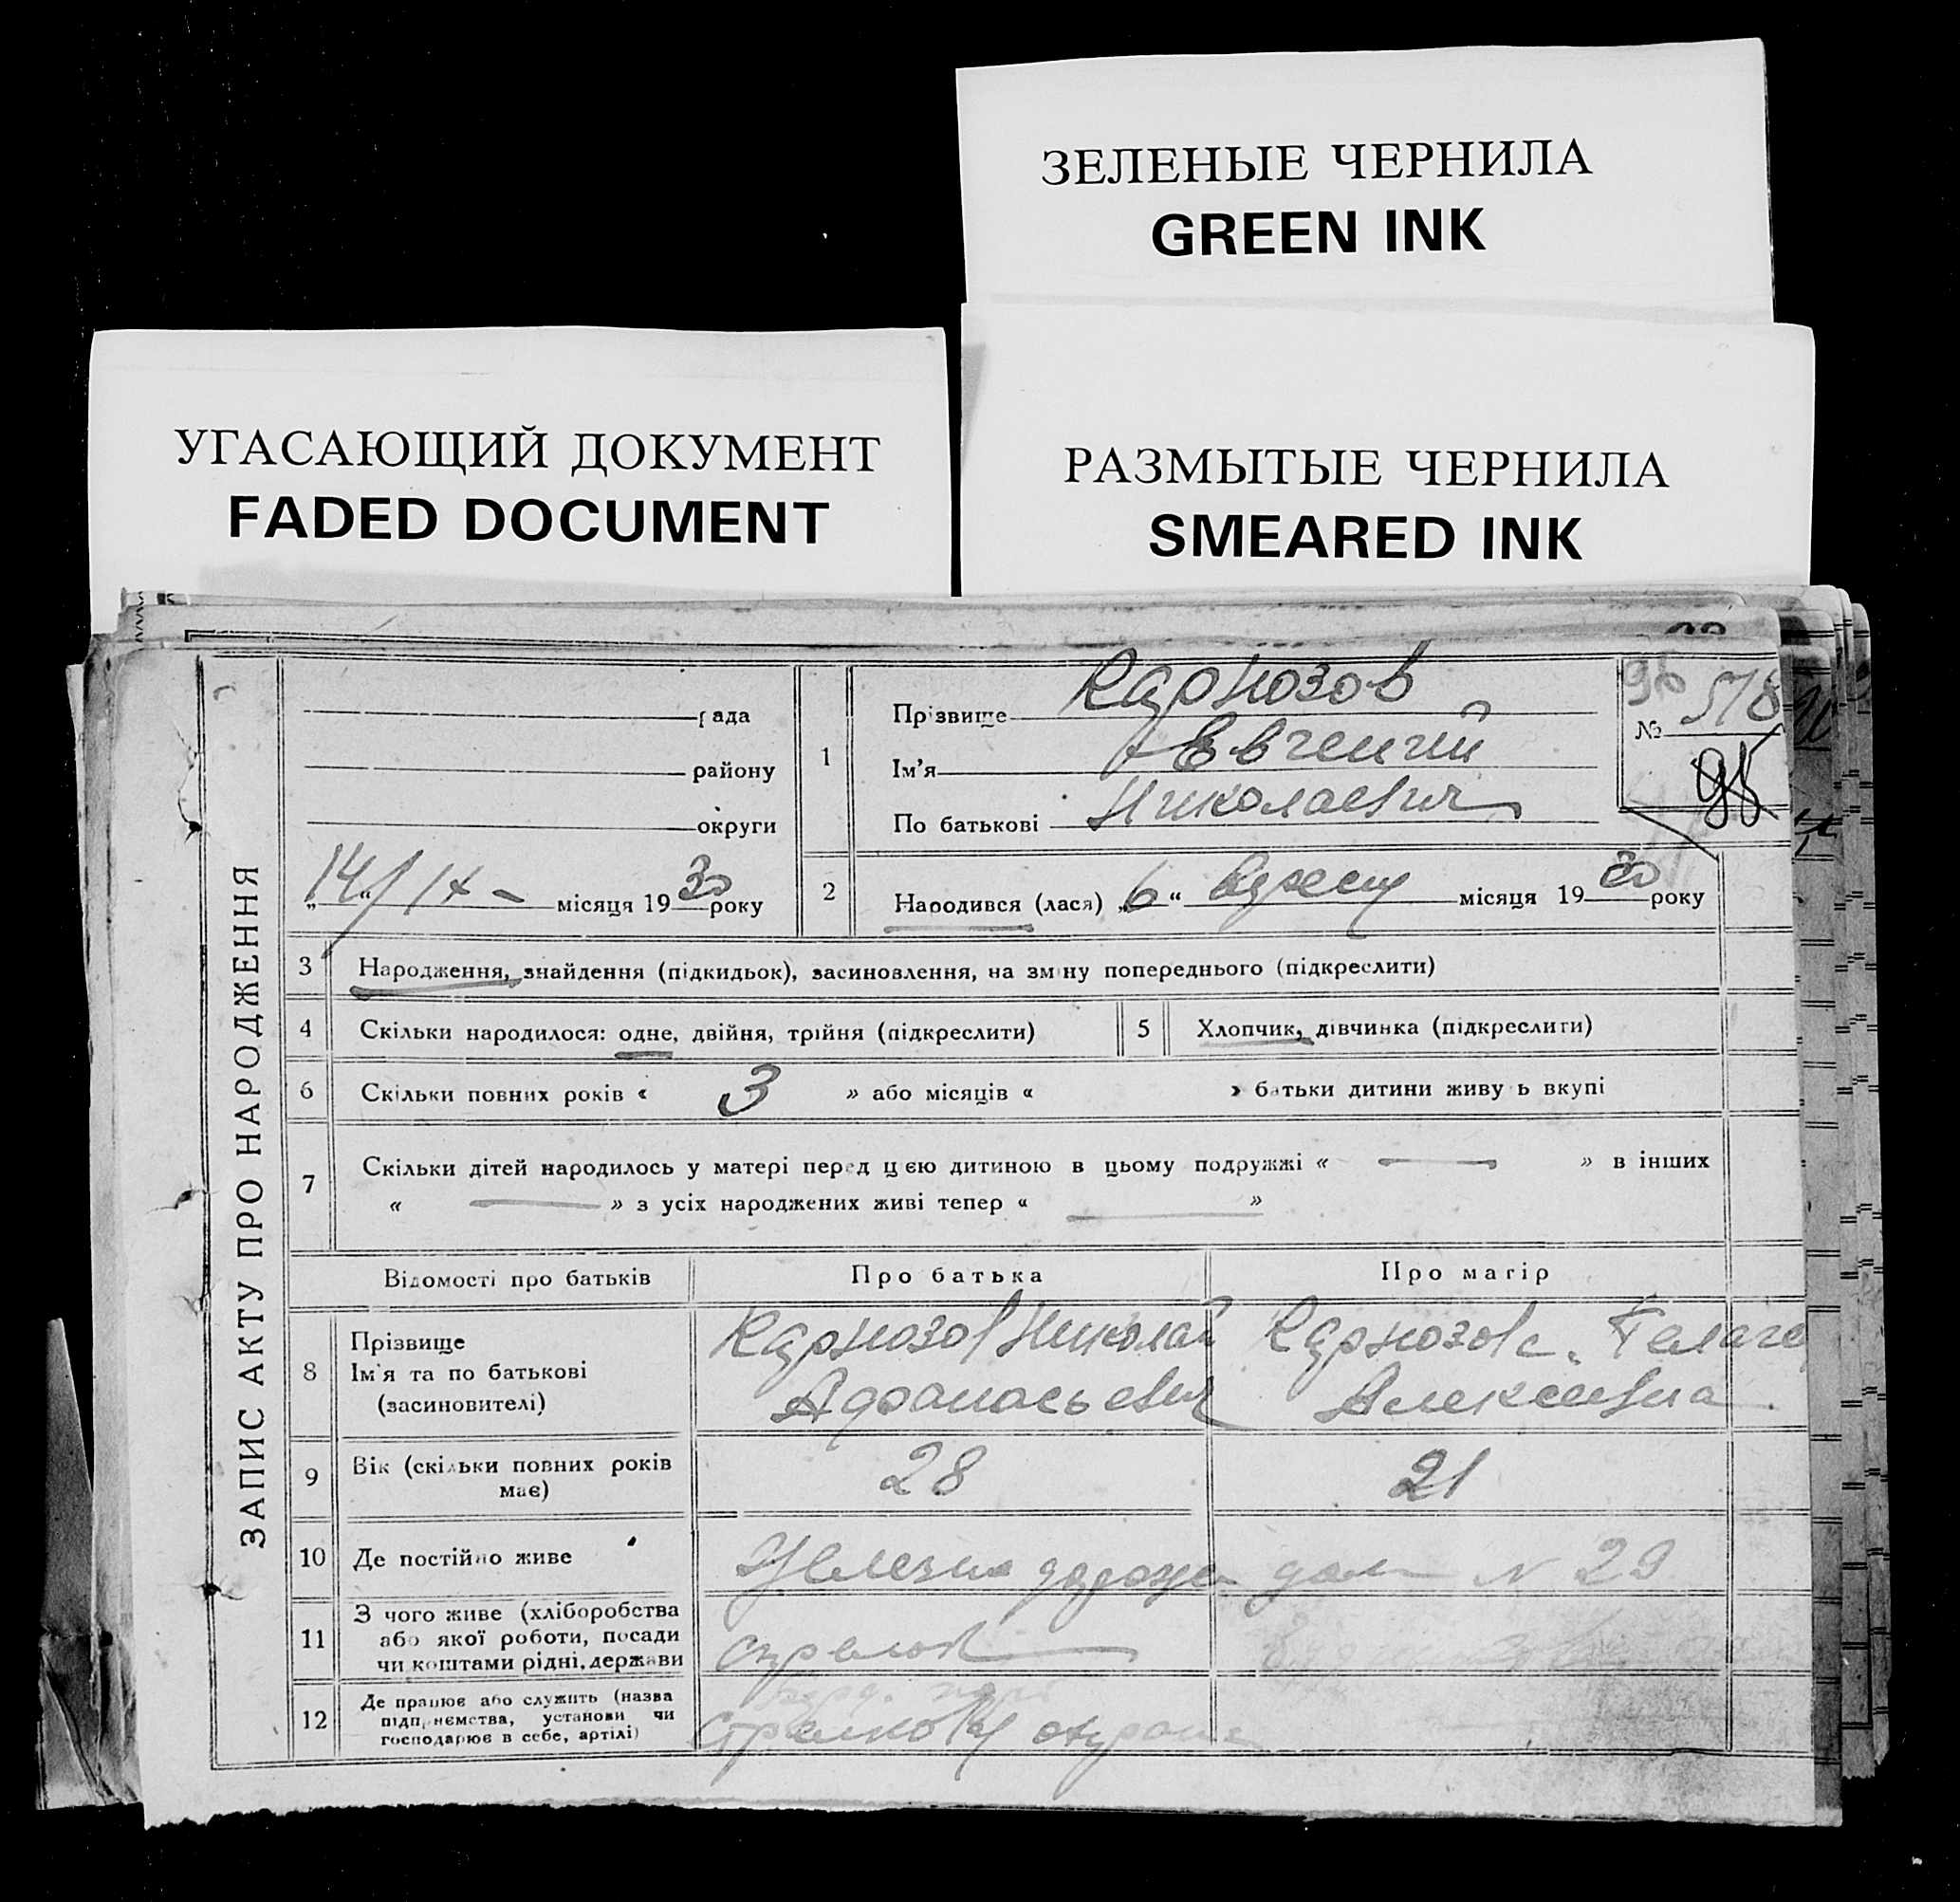 ЗЕЛЕНЫЕ ЧЕРНИЛА
GREEN INK
УГАСАЮЩИЙ ДОКУМЕНТ
FADED DOCUMENT
РАЗМЫТЫЕ ЧЕРНИЛА
SMEARED INK
ЗАПИС АКТУ ПРО НАРОДЖЕННЯ
рада
району
округи
„14“ IX - місяця 1930 року
1
Прізвище Карнозов
Ім'я Евгений
По батькові Николаевич
96
№ 518
95
2 Народився (лася) „6“ вересня місяця 1930 року
3 Народження, знайдення (підкидьок), засиновлення, на зміну попереднього (підкреслити)
4 Скільки народилося: одне, двійня, трійня (підкреслити)
5 Хлопчик, дівчинка (підкреслити)
6 Скільки повних років « 3 » або місяців « » батьки дитини живуть вкупі
7 Скільки дітей народилось у матері перед цією дитиною в цьому подружжі « — » в інших
« — » з усіх народжених живі тепер « — »
Відомості про батьків Про батька Про матір
8 Прізвище
Ім'я та по батькові
(засновителі)
Карнозов Николай
Афанасьевич
Карнозова Пелаге
Алексеевна
9 Вік (скільки повних років
має)
28 21
10 Де постійно живе
дом N 29
11 З чого живе (хліборобства
або якої роботи, посади
чи коштами рідні, держави
стрелок
12 Де працює або служить (назва
підприємства, установи чи
господарює в себе, артілі)